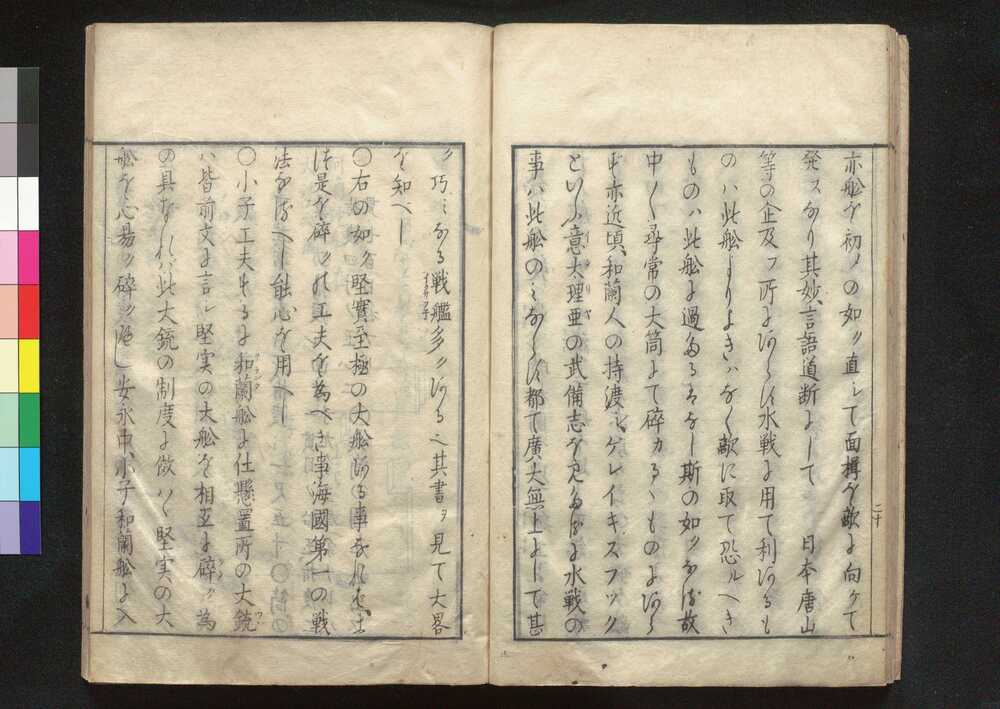 亦舩を初メの如ク直シて面楫を敵に向ケて
発スなり其妙言語道断にして 日本唐山
等の企及フ所にあらす水戦に用て利あるも
のハ此舩よりよきハなく敵に取て恐ルへき
ものハ此舩に過たるはなし斯の如クなる故
中〱尋常の大筒にて碎カるゝものにあら
す亦近頃和蘭人の持渡シケレイキスフック
といふ意太理亜の武備志を見たるに水戦の
事ハ此舩のミならす都て廣大無上にして甚
タ巧ミなる戦艦多クある也其書ヲ見て大畧
を知へし
〇右の如ク堅實至極の大舩ある事なれは
法是を碎クの工夫を為へき事海國第一の戦
法なるへし能心を用へし
〇小子工夫するに和蘭舩に仕懸置所の大銃
ハ皆前文に言し堅実の大舩を相互に碎ク為
の具なれハ此大銃の制度に倣ハく堅実の大
舩を心易ク碎クへし安永中小子和蘭舩に入
二十